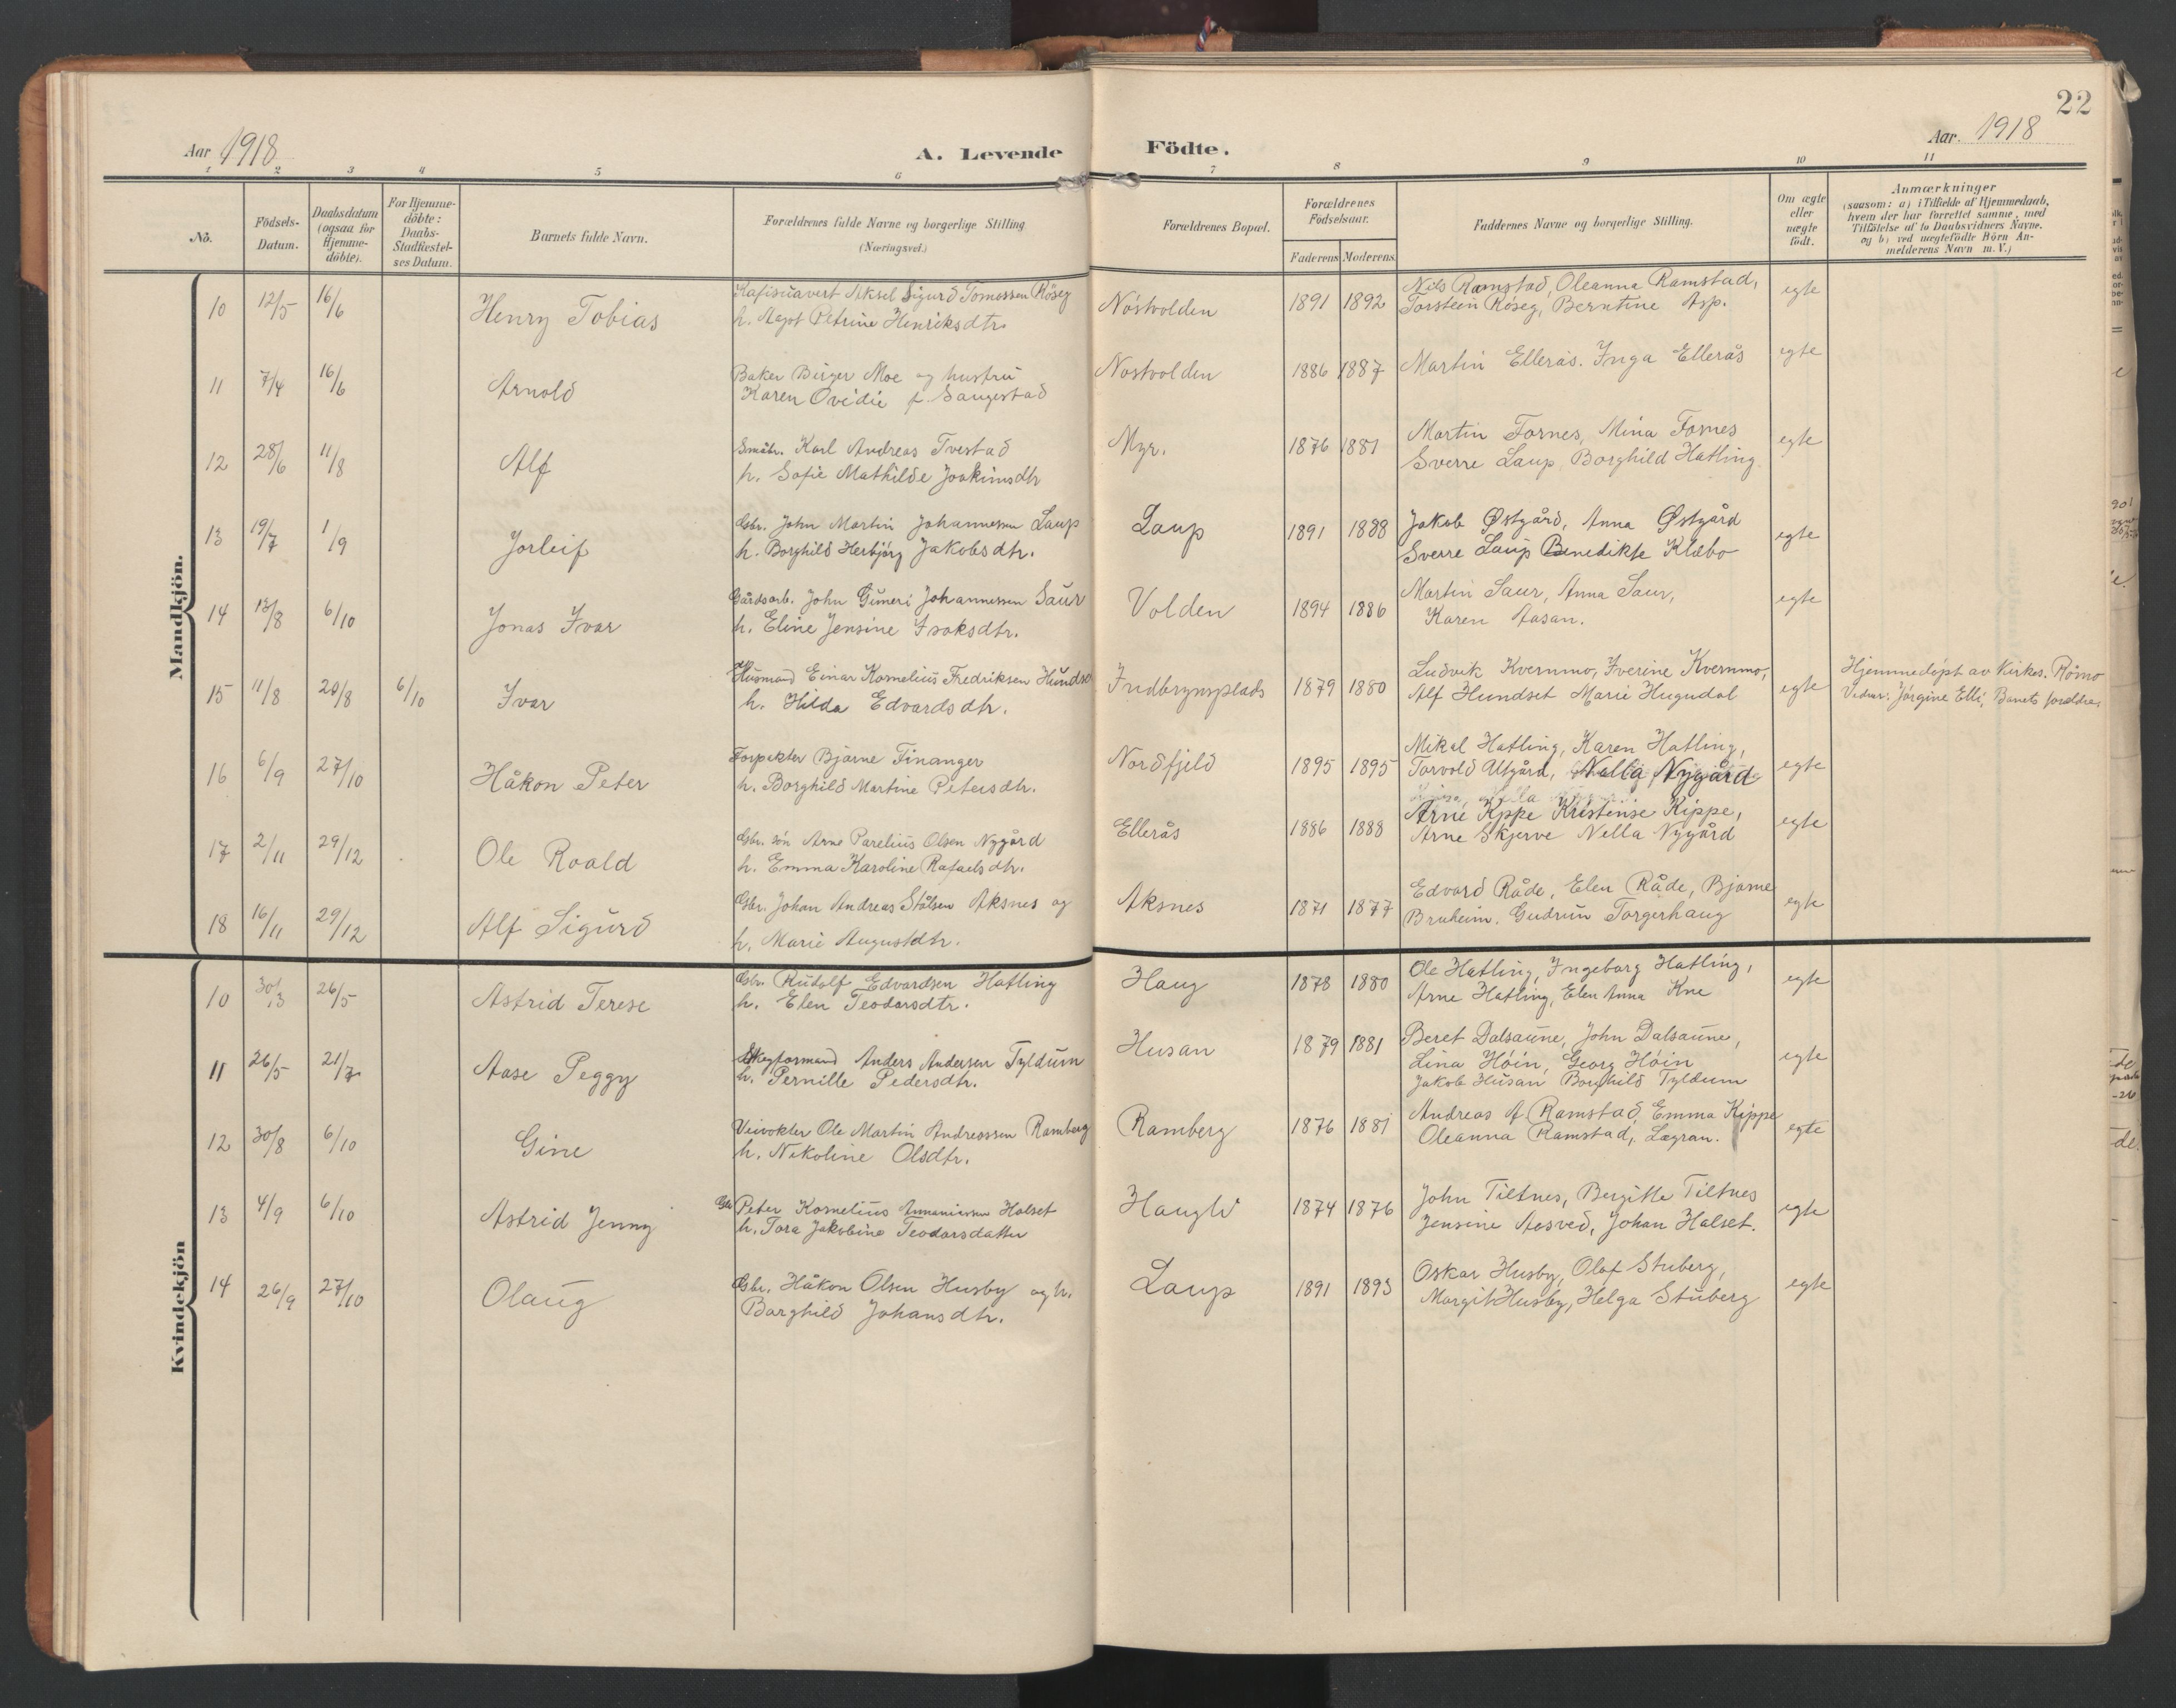 22
Aar 1918
A. Levende Födte.
Aar. 1918
1 2 3 4 5 6 7 8 9 10 11
No.
Födsels-Datum.
Daabsdatum (ogsaa for Hjemme-döbte).
For Hjemme-döbte: Daabs-Stadfæstel-ses Datum.
Barnets fulde Navn.
Forældrenes fulde Navne og borgerlige Stilling
(Næringsvei.)
Forældrenes Bopæl.
Forældrenes Födselsaar.
Faderens Moderens
Faddernes Navne og borgerlige Stilling.
Om ægte eller uægte födt.
Anmærkninger
(saasom: a) i Tilfælde af Hjemmedaab,
hvem der har forrettet samme, med
Tilföielse af to Daabsvidners Navne.
og b) ved uægtefödte Börn An-
melderens Navn m. V.)
Mandkjön.
10 12/5 16/6 Henry Tobias
Aksel Sigurd Tomassen Röseg
h. Aagot Petrine Henriksdtr.
Nóstvolden 1891 1892
Nils Ramstad, Oleanna Ramstad,
Torstein Róseg, Berntine Asp.
egte
11 7/4 16/6 Arnold
Baker Birger Moe og hustru
Karen Ovidie f. Saugestad
Nostvolden 1886 1887
Martin Ellerås. Inga Ellerås
egte
12 28/6 11/8 Alf
Småbr. Karl Andreas Tvestad
h. Sofie Mathilde Joakimsdtr
Myr. 1876 1881
Martin Fornes, Mina Fornes
Sverre Laup, Borghild Hatling.
egte
13 19/7 1/9 Jorleif
Gbr. John Martin Johannessen Laup
h. Borghild Herbjörg Jakobsdtr.
Laup 1891 1888
Jakob Østgård, Anna Østgård
Sverre Laup Benedikte Klæbo
egte
14 13/8 6/10 Jonas Ivar
Gårdsarb. John Gumeri Johannessen Saur
h. Eline Jensine Isaksdtr.
Volden 1894 1886
Martin Saur, Anna Saur,
Karen Aasan.
egte
15 11/8 20/8 6/10 Ivar
Husmand Einar Kornelius Fredriksen Hundse
h. Hilda Edvardsdtr.
Indbrynsplads 1879 1880
Ludvik Kvernmo, Iverine Kvernmo,
Alf Hundset Marie Hugudal
egte
Hjemmedöpt av Kirkes. Römo
Vidner: Jörgine Elli, Barnets foreldre.
16 6/9 27/10 Håkon Peter
Forpakter Bjarne Finanger
h. Borghild Martine Petersdtr.
Nordfjeld 1895 1895
Mikal Hatling, Karen Hatling,
Torvold Utgård, Nella Nygård
egte
17 2/11 29/12 Ole Roald
Gbr. sön Arne Parelius Olsen Nygård
h. Emma Karoline Rafaelsdtr.
Ellerås 1886 1888
Arne Kippe Kristense Kippe,
Arne Skjerve Nella Nygård
egte
18 16/11 29/12 Alf Sigurd
Gbr. Johan Andreas Stålsen Aksnes og
h. Marie Augustdtr.
Aksnes 1871 1877
Edvard Råde, Elen Råde, Bjarne
Bruheim. Gudrun Torgerhaug
egte
Kvindekjön
10 30/3 26/5 Astrid Terese
Gbr. Rudolf Edvardsen Hatling
h. Elen Teodorsdtr.
Haug 1878 1880
Ole Hatling, Ingeborg Hatling,
Arne Hatling, Elen Anna Kne
egte
11 26/5 21/7 Aase Peggy
Anders Andersen Tyldum
h. Pernille Pedersdtr.
Husan 1879 1881
Beret Dalsaune, John Dalsaune,
Lina Höin, Georg Höin
Jakob Husan Borghild Tyldum
egte
12 30/8 6/10 Gine
Veivokter Ole Martin Andreassen Ramberg
h. Nikoline Olsdtr.
Ramberg 1876 1881
Andreas A. Ramstad, Emma Kippe
Oleanna Ramstad, Lægran.
egte
13 4/9 6/10 Astrid Jenny
Gbr. Peter Kornelius Halset
h. Tora Jakobine Teodorsdatter
Haugli 1874 1876
John Tiltnes, Bergitte Tiltnes
Jensine Aasved, Johan Halset.
egte
14 26/9 27/10 Olaug
Gbr. Håkon Olsen Husby og h.
Borghild Johansdtr.
Laup 1891 1893
Oskar Husby, Olaf Stuberg,
Margit Husby, Helga Stuberg
egte